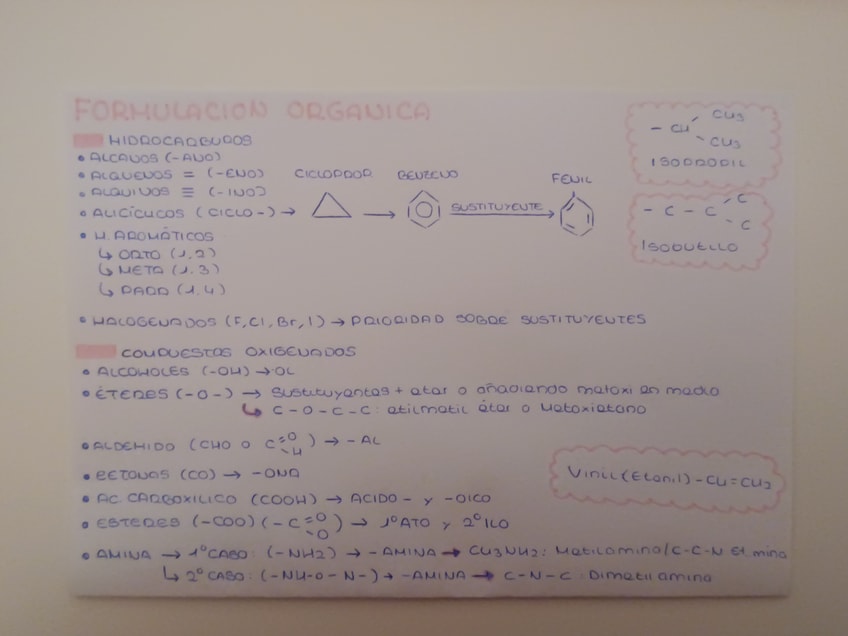 FORMULACION ORGANICA
HIDROCARBUROS
• ALCANOS (-ANO)
• ALQUENOS = (-ENO)
• ALQUINOS ≡ (-INO)
• ALICÍCLICOS (CICLO-) →
CICLOPROP
BENCENO
SUSTITUYENTE
FENIL
• H. AROMÁTICOS
↳ ORTO (1,2)
↳ META (1,3)
↳ PARA (1,4)
• HALOGENADOS (F, Cl, Br, I) → PRIORIDAD SOBRE SUSTITUYENTES
- CH
CH3
CH3
ISOPROPIL
- C - C
C
C
ISOBUTILO
COMPUESTOS OXIGENADOS
• ALCOHOLES (-OH) → OL
• ÉTERES (-O-) → Sustituyentes + eter o añadiendo metoxi en medio
↳ C-O-C-C: etilmetil éter o Metoxietano
• ALDEHIDO (CHO O C=O -H) → -AL
• CETONAS (CO) → -ONA
Vinil (Etenil) -CH=CH2
• AC. CARBOXILICO (COOH) → ACIDO- y -OICO
• ESTERES (-COO) (-C=O -O) → 1º ATO y 2º ILO
• AMINA → 1º CASO: (-NH2) → -AMINA → CH3NH2: Metilamina/C-C-N
↳ 2º CASO: (-NH-O-N-) → -AMINA → C-N-C: Dimetilamina